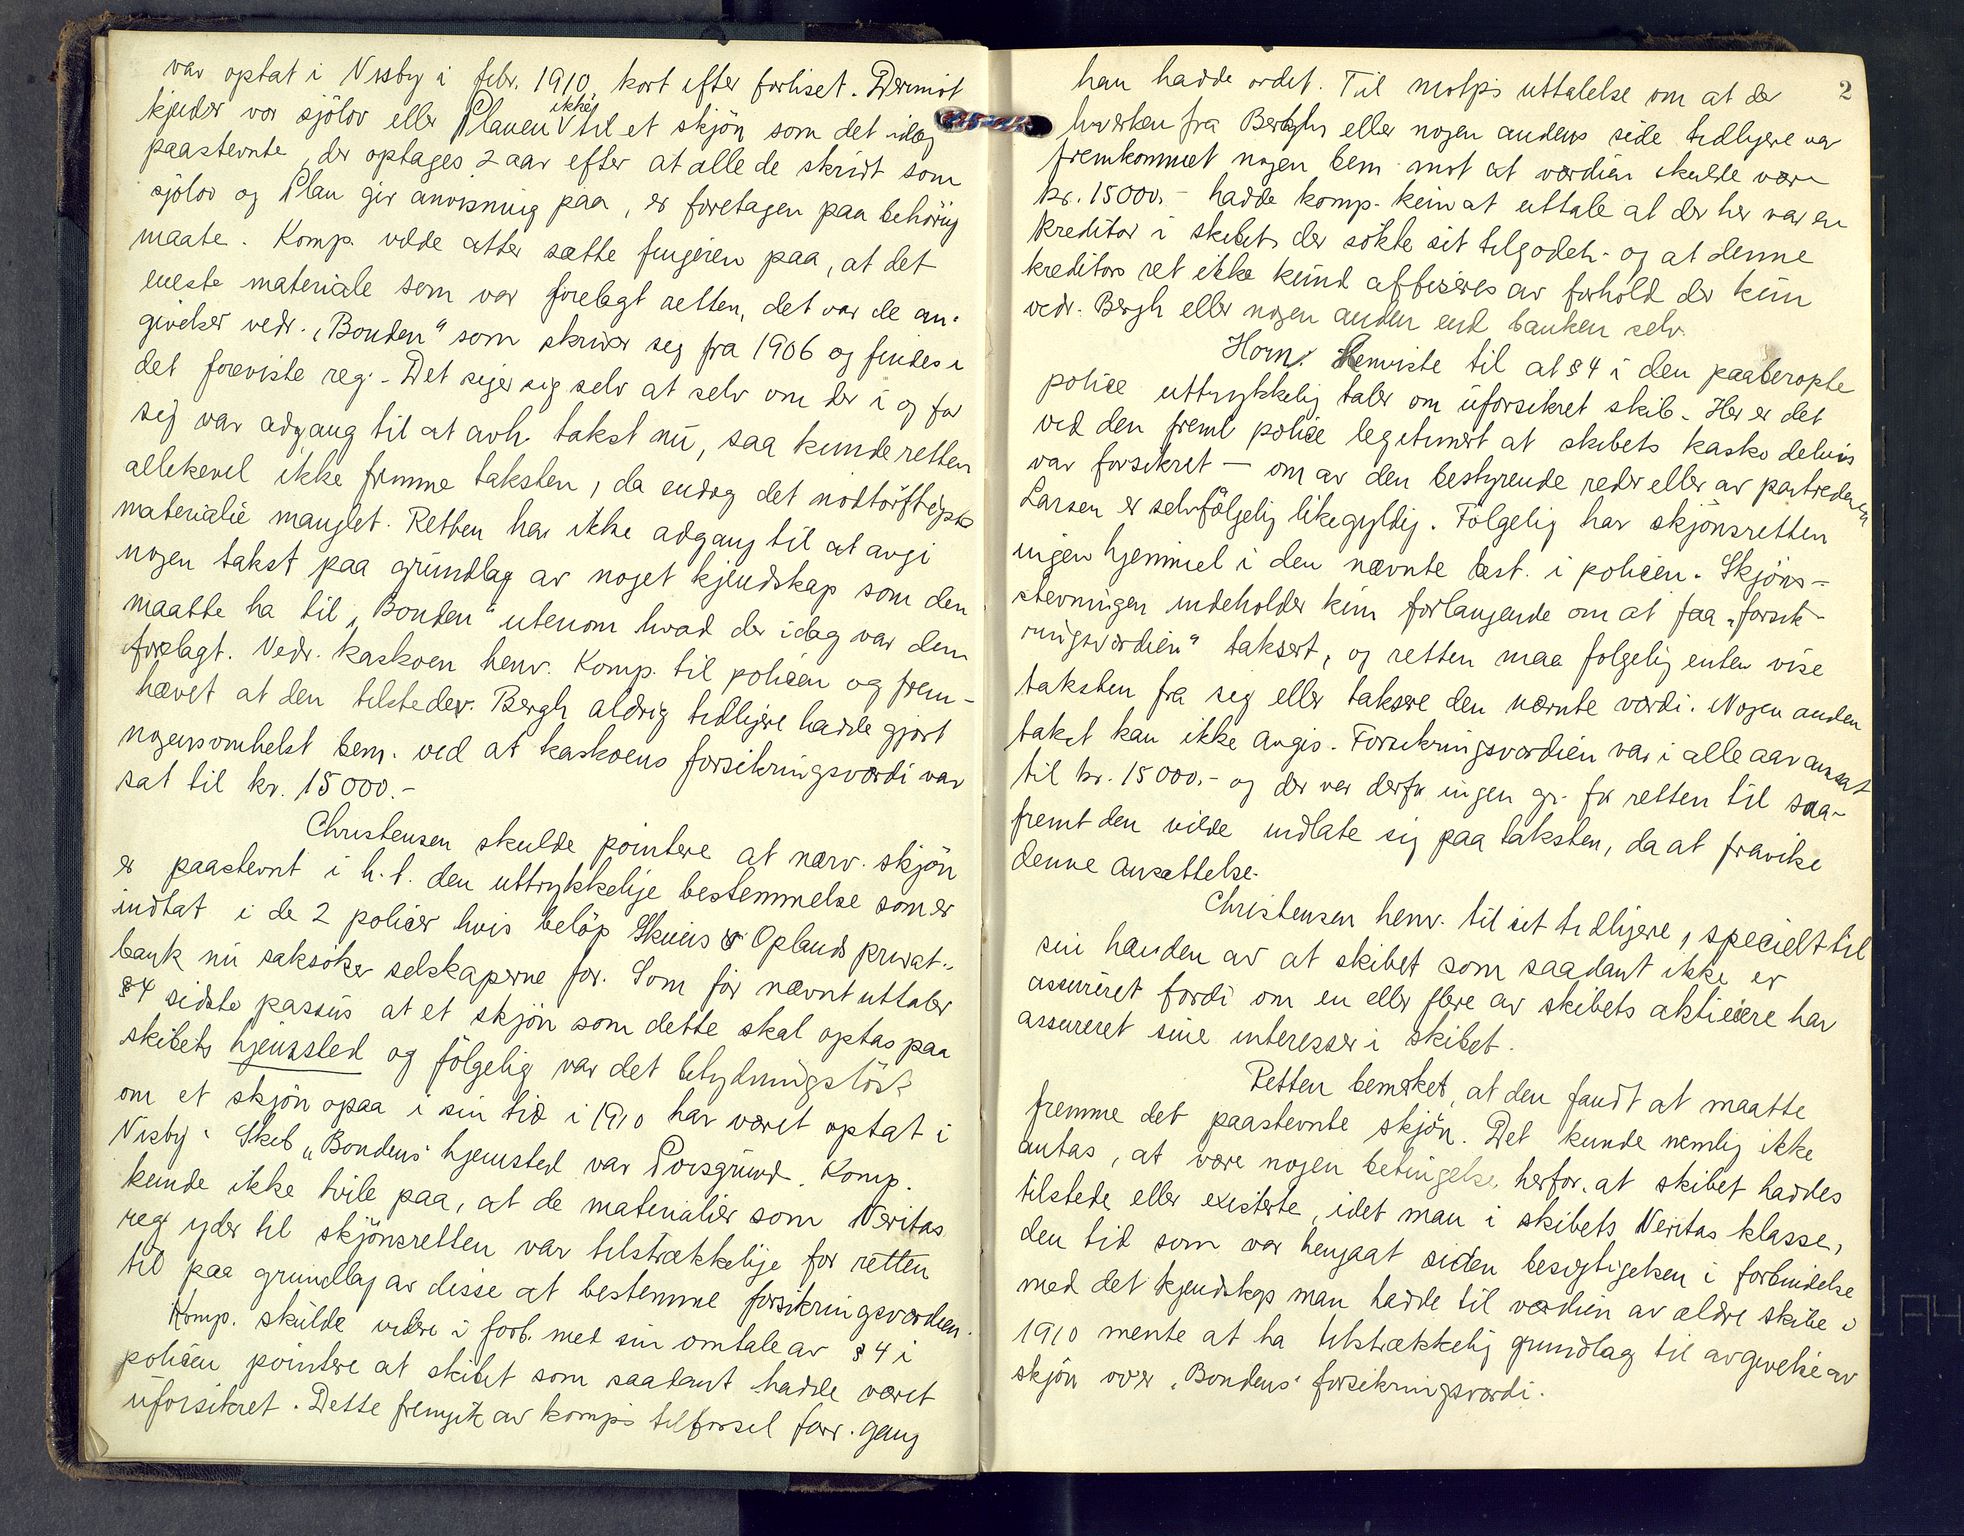 var optat i Visby i febr. 1910, kort efter forliset. Derimot
kjender vor sjölov eller Planen ikke til et skjön som det idag
paastevnte, der optages 2 aar efter at alle de skridt som
sjölov og Plan gir anvisning paa, er foretagen paa behörig
maate. Komp. vilde atter sætte fingeren paa, at det
eneste materiale som var forelagt retten, det var de an-
givelser vedr. "Bonden" som skriver seg fra 1906 og findes i
det foreviste reg. - Det siger sig selv at selv om der i og for
sig var adgang til at avh. takst nu, saa kunde retten
allikevel ikke fremme taksten, da endog det nödtörftigste
materiale manglet. Retten har ikke adgang til at avgi
nogen takst paa grundlag av noget kjendskap som den
maatte ha til "Bonden" utenom hvad der idag var dem
forelagt. Vedr. kaskoen henv. Komp. til policen og frem-
hævet at den tilstedev. Bergh aldrig tidligere hadde gjort
nogensomhelst bem. ved at kaskoens forsikringsværdi var
sat til kr. 15000.-
Christensen skulde pointere at nærv. skjön
er paastevnt i h.t. den uttrykkelige bestemmelse som er
indtat i de 2 policer hvis belöp Skiens & Oplands privat-
bank nu saksöker selskaperne for. Som för nævnt uttaler
§4 sidste passus at et skjön som dette skal optas paa
skibets hjemsted og fölgelig var det betydningslöst
om et skjön opaa i sin tid i 1910 har været optat i
Visby. Skib "Bondens" hjemsted var Porsgrund. Komp.
kunde ikke tvile paa, at de materialier som Veritas
reg. yder til skjönsretten var tilstrækkelige for retten
til paa grundlag av disse at bestemme forsikringsværdien.
Komp. skulde videre i forb. med sin omtale av §4 i
policen pointere at skibet som saadant hadde været
uforsikret. Dette fremgik av komp's tilförsel förr. gang
2
han hadde ordet. Til motp's uttalelse om at der
hverken fra Berghs eller nogen andens side tidligere var
fremkommet nogen bem. mot at værdien skulde være
kr. 15000.- hadde komp. kun at uttale at der her var en
kreditor i skibet der sökte sit tilgodeh. og at denne
kreditors ret ikke kund afficeres av forhold der kun
vedr. Bergh eller nogen anden end banken selv.
Horn: Henviste til at §4 i den paaberopte
police uttrykkelig taler om uforsikret skib. Her er det
ved den freml. police legitimert at skibets kasko delvis
var forsikret — om av den bestyrende reder eller av partrederen
Larsen er selvfölgelig likegyldig. Fölgelig har skjönsretten
ingen hjemmel i den nævnte best. i policen. Skjöns-
stevningen indeholder kun forlangende om at faa "forsik-
ringsværdien" taksert, og retten maa fölgelig enten vise
taksten fra sig eller taksere den nævnte værdi. Nogen anden
takst kan ikke avgis. Forsikringsværdien var i alle aar ansat
til kr. 15000.- og der var derfor ingen gr. for retten til saa-
fremt den vilde indlate sig paa taksten, da at fravike
denne ansættelse.
Christensen henv. til sit tidligere, specielt til
sin hævden av at skibet som saadant ikke er
assureret fordi om en eller flere av skibets aktieiere har
assureret sine interesser i skibet.
Retten bemerket, at den fandt at maatte
fremme det paastevnte skjön. Det kunde nemlig ikke
antas, at være nogen betingelse herfor, at skibet haddes
tilstede eller existerte, idet man i skibets Veritas klasse,
den tid som var hengaat siden besigtigelsen i forbindelse
med det kjendskap man hadde til værdien av ældre skibe i
1910 mente at ha tilstrækkelig grundlag til avgivelse av
skjön over "Bondens" forsikringsværdi.